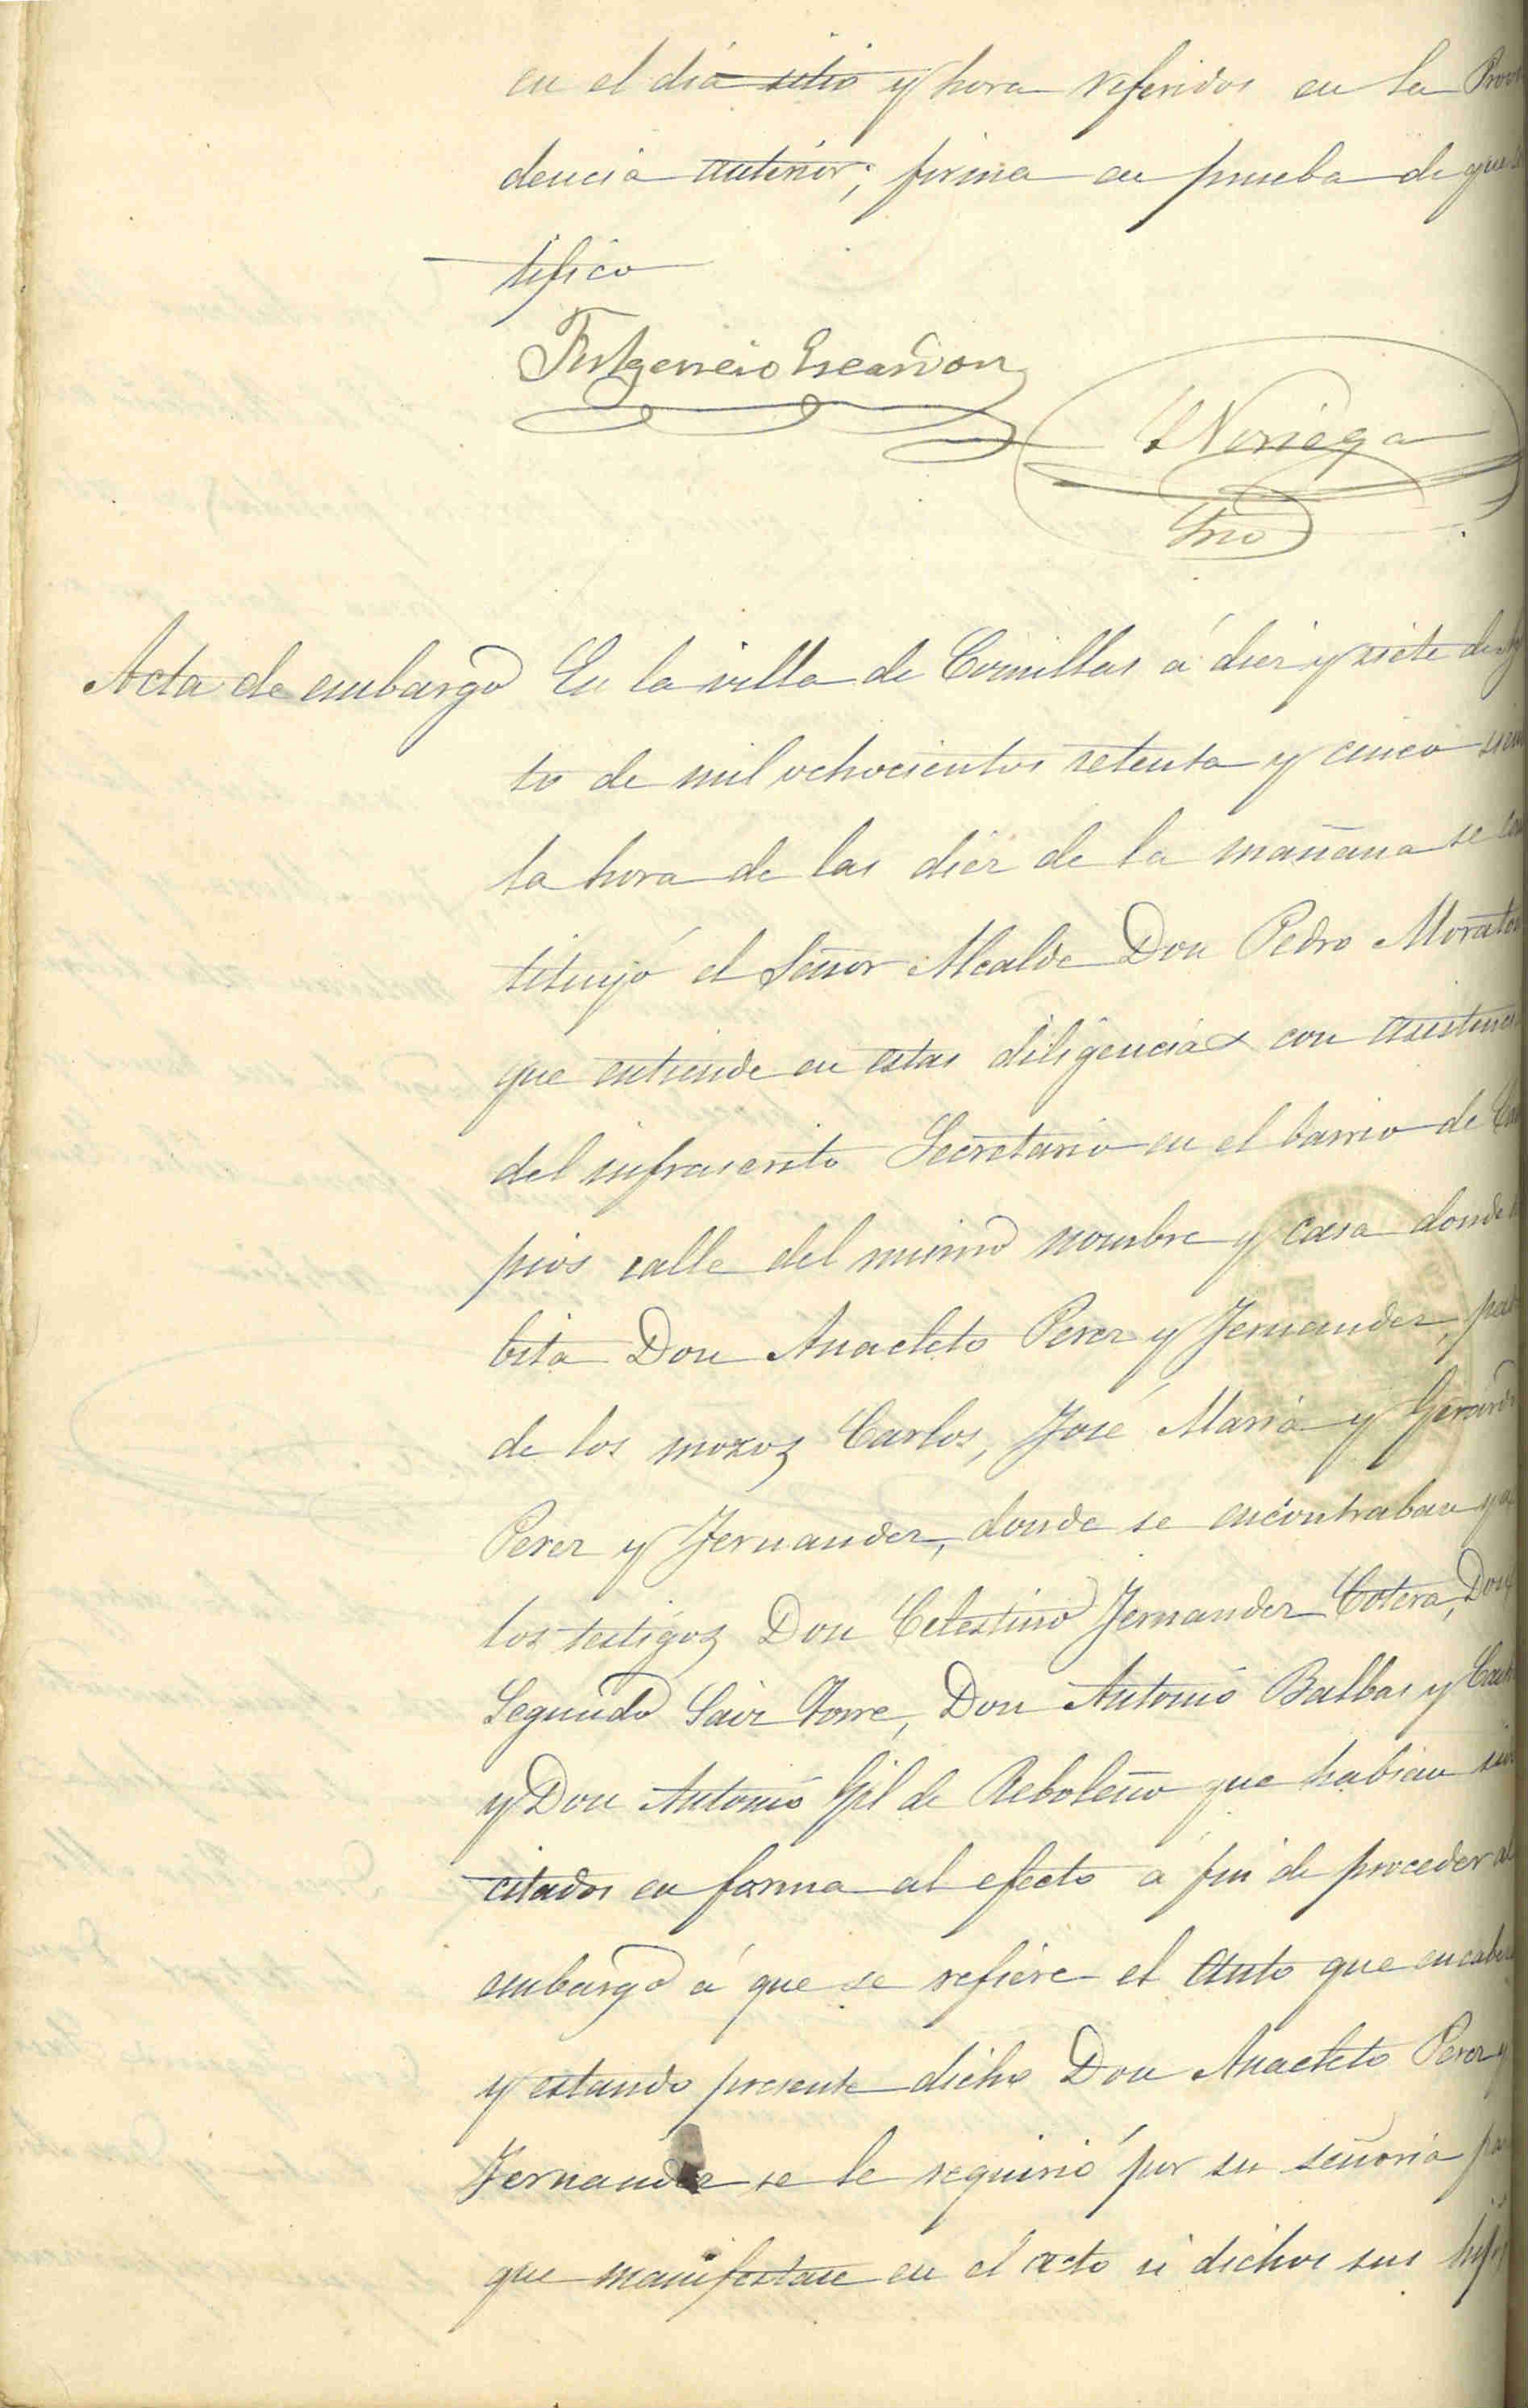 en el dia sitio y hora referidos en la Provi
dencia anterior; firma en prueba de que
tifico
Fulgencio Escandon
Noriega
Srio
Acta de embargo En la villa de Comillas á diez y siete de Ag
to de mil ochocientos setenta y cinco sien
la hora de las diez de la mañana se con
tituyó el Señor Alcalde Don Pedro Moraton
que entiende en estas diligencias con asistenci
del infrascrito Secretario en el barrio de Cam
pios calle del mismo nombre y casa donde
bita Don Anacleto Perez y Fernandez, pad
de los mozos Carlos, José Maria y Gerardo
Perez y Fernandez, donde se encontraban ya
los testigos Don Celestino Fernandez Cotera, Don
Segundo Saiz Torre, Don Antonio Balbas y
y Don Antonio Gil de Reboleño que habian sid
citados en forma al efecto a fin de proceder al
embargo á que se refiere el auto que encabe
y estando presente dicho Don Anacleto Perez y
Fernandez se le requirió por su señoria pa
que manifestase en el acto si dichos sus hijos